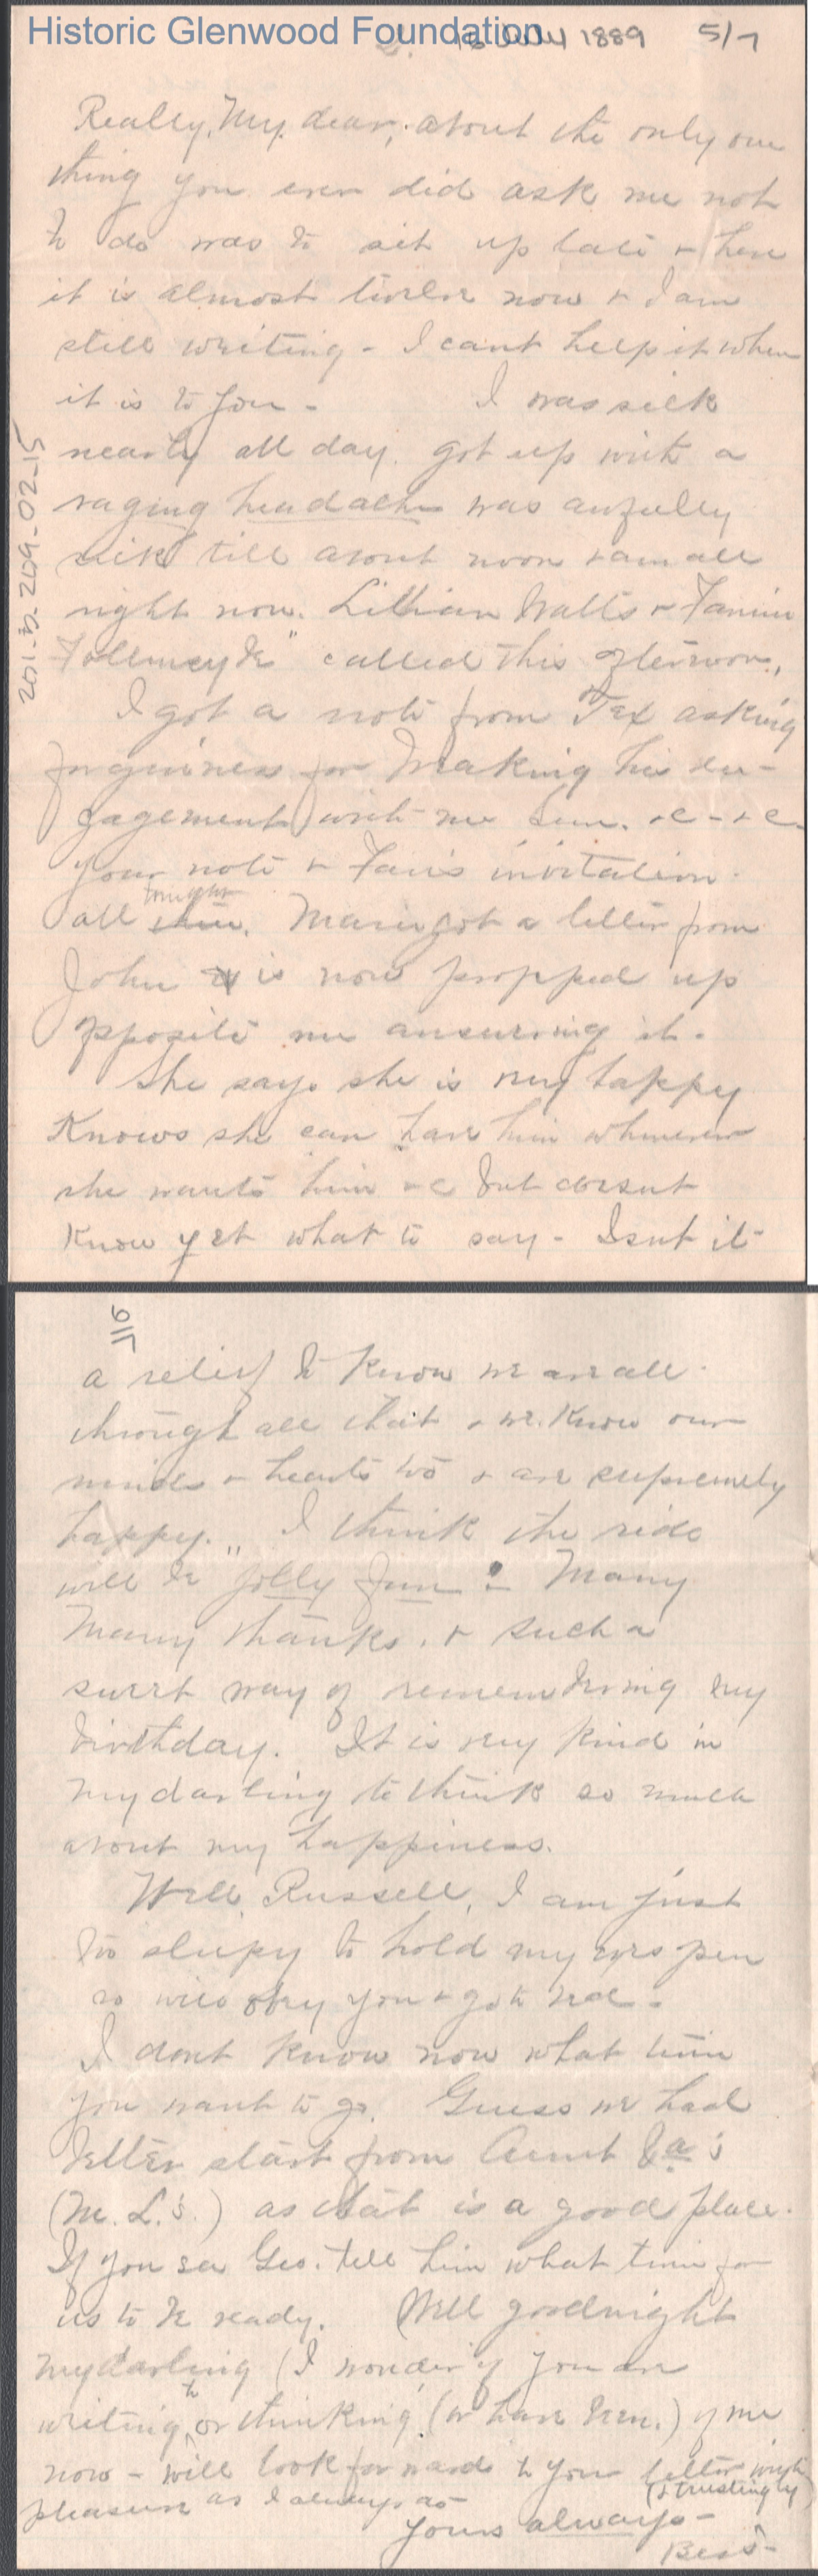 Historic Glenwood Foundation
July 1889 5/7
Really, My dear, about the only one
thing you ever did ask me not
to do was to sit up late + here
it is almost twelve now + I am
still writing - I cant help it when
it is to you - I was sick
nearly all day. got up with a
raging headache was awfully
sick till about noon + am all
right now. Lillian Watts + Fannie
called this afternoon.,
I got a note from Tex asking
forgiveness for making his en-
gagement with me Sun. +c - +c -
your note + Fan's invitation.
tonight
all. Marie got a letter from
John is now propped up
opposite me answering it.
She says she is very happy
Knows she can have him whenever
she wants him +c but doesnt
Know yet what to say - Isnt it
201-5-209-02-15
6/7
a relief to Know we are all
through all that + we. Know our
minds + hearts too + are supremely
happy. „ I think the ride
will be jolly fun - Many
Many thanks. + such a
sweet way of remembering my
birthday. It is very kind in
my darling to think so much
about my happiness.
Well, Russell, I am just
too sleepy to hold my eyes open
so will obey you + go to bed -
I dont know now what time
you want to go. Guess we had
better start from Aunt
(M. L.'s.) as that is a good place.
If you see Geo. tell him what time for
us to be ready. Well goodnight
my darling (I wonder if you are
writing to, or thinking (or have been.) of me
now - will look forward to your letter with
(+ trustingly)
pleasure as I always do -
Yours always -
Bess -